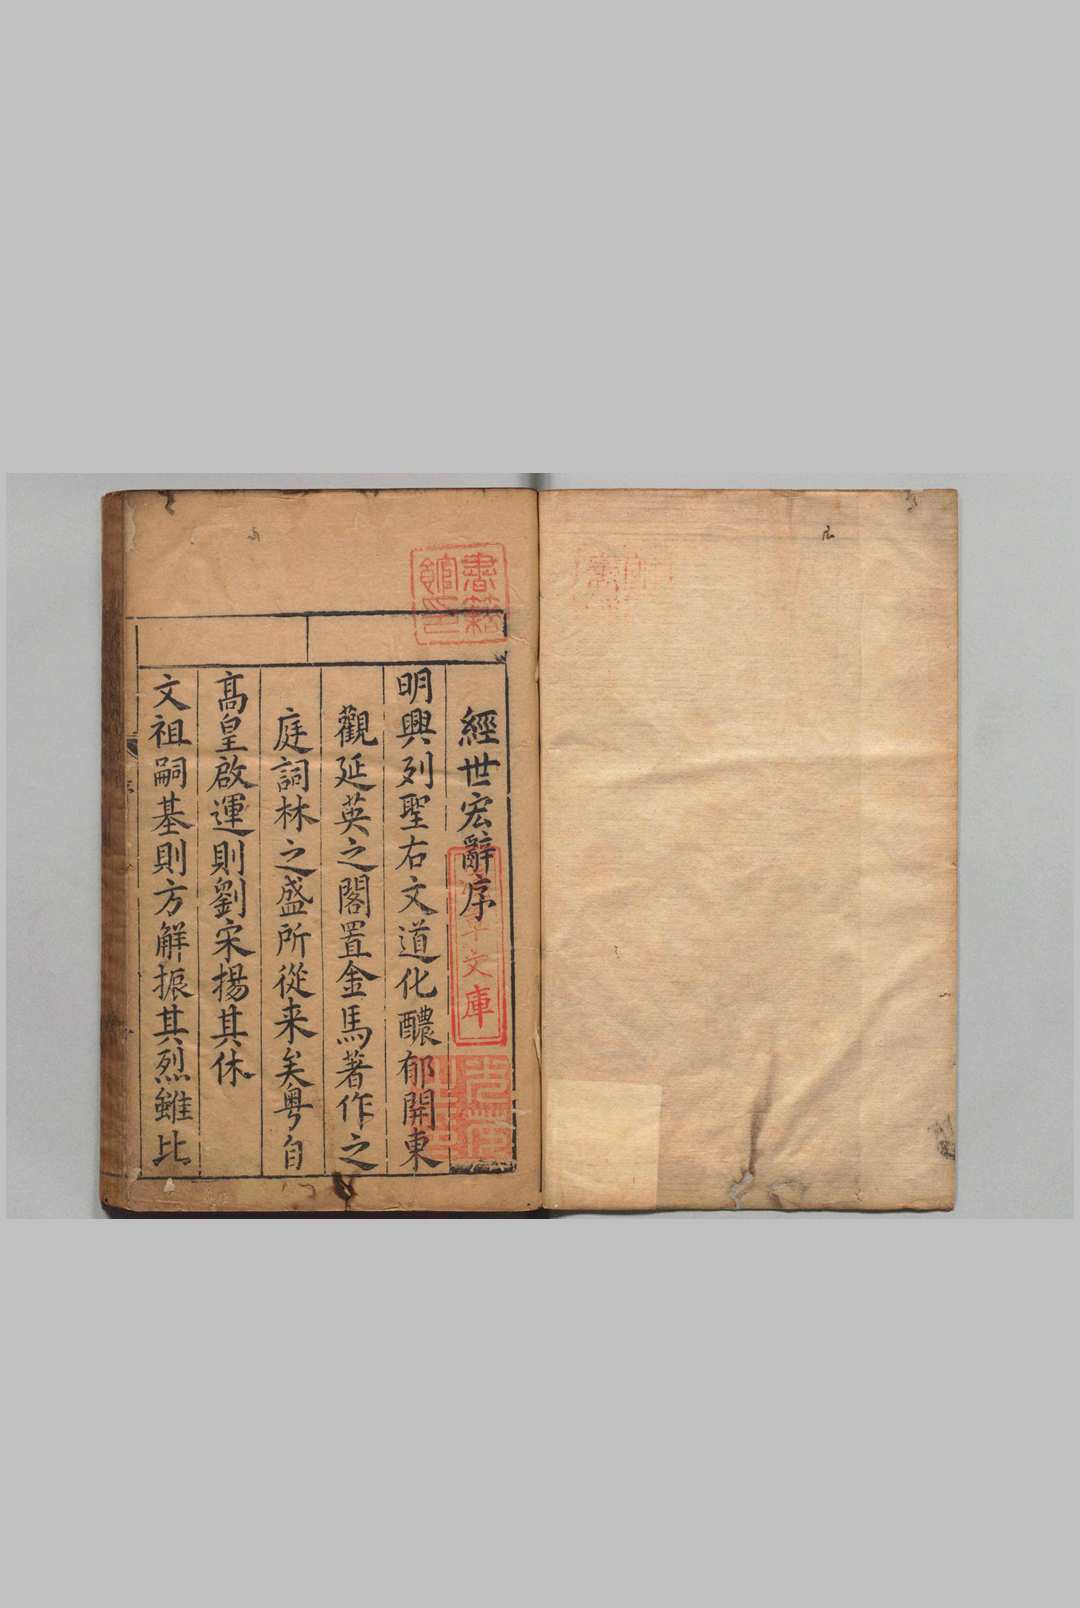 經世宏辭序
明興列聖右文道化醲郁開東
觀延英之閣置金馬著作之
庭詞林之盛所從来矣粤自
髙皇啟運則劉宋揚其休
文祖嗣基則方解振其烈雖比
書籍
館印
文庫